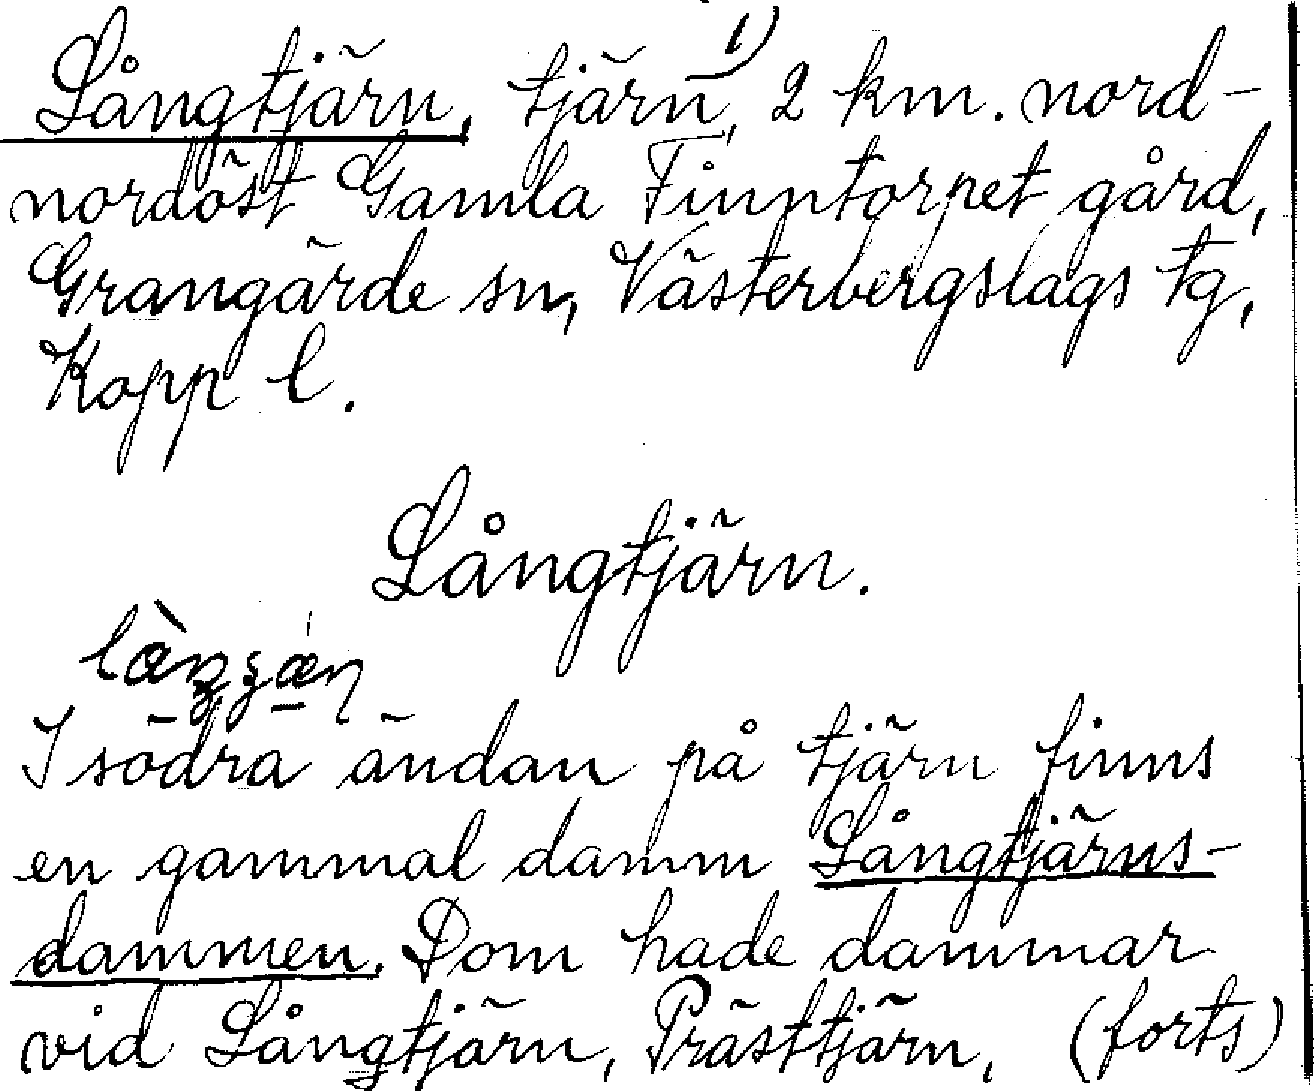 Långtjärn, tjärn 1), 2 km. nord-
nordöst Gamla Finntorpet gård,
Grangärde sn, Västerbergslags tg,
Kopp l.
Långtjärn.
I södra ändan på tjärn finns
en gammal damm Långtjärns-
dammen. Dom hade dammar
vid Långtjärn, Prästtjärn, (forts)